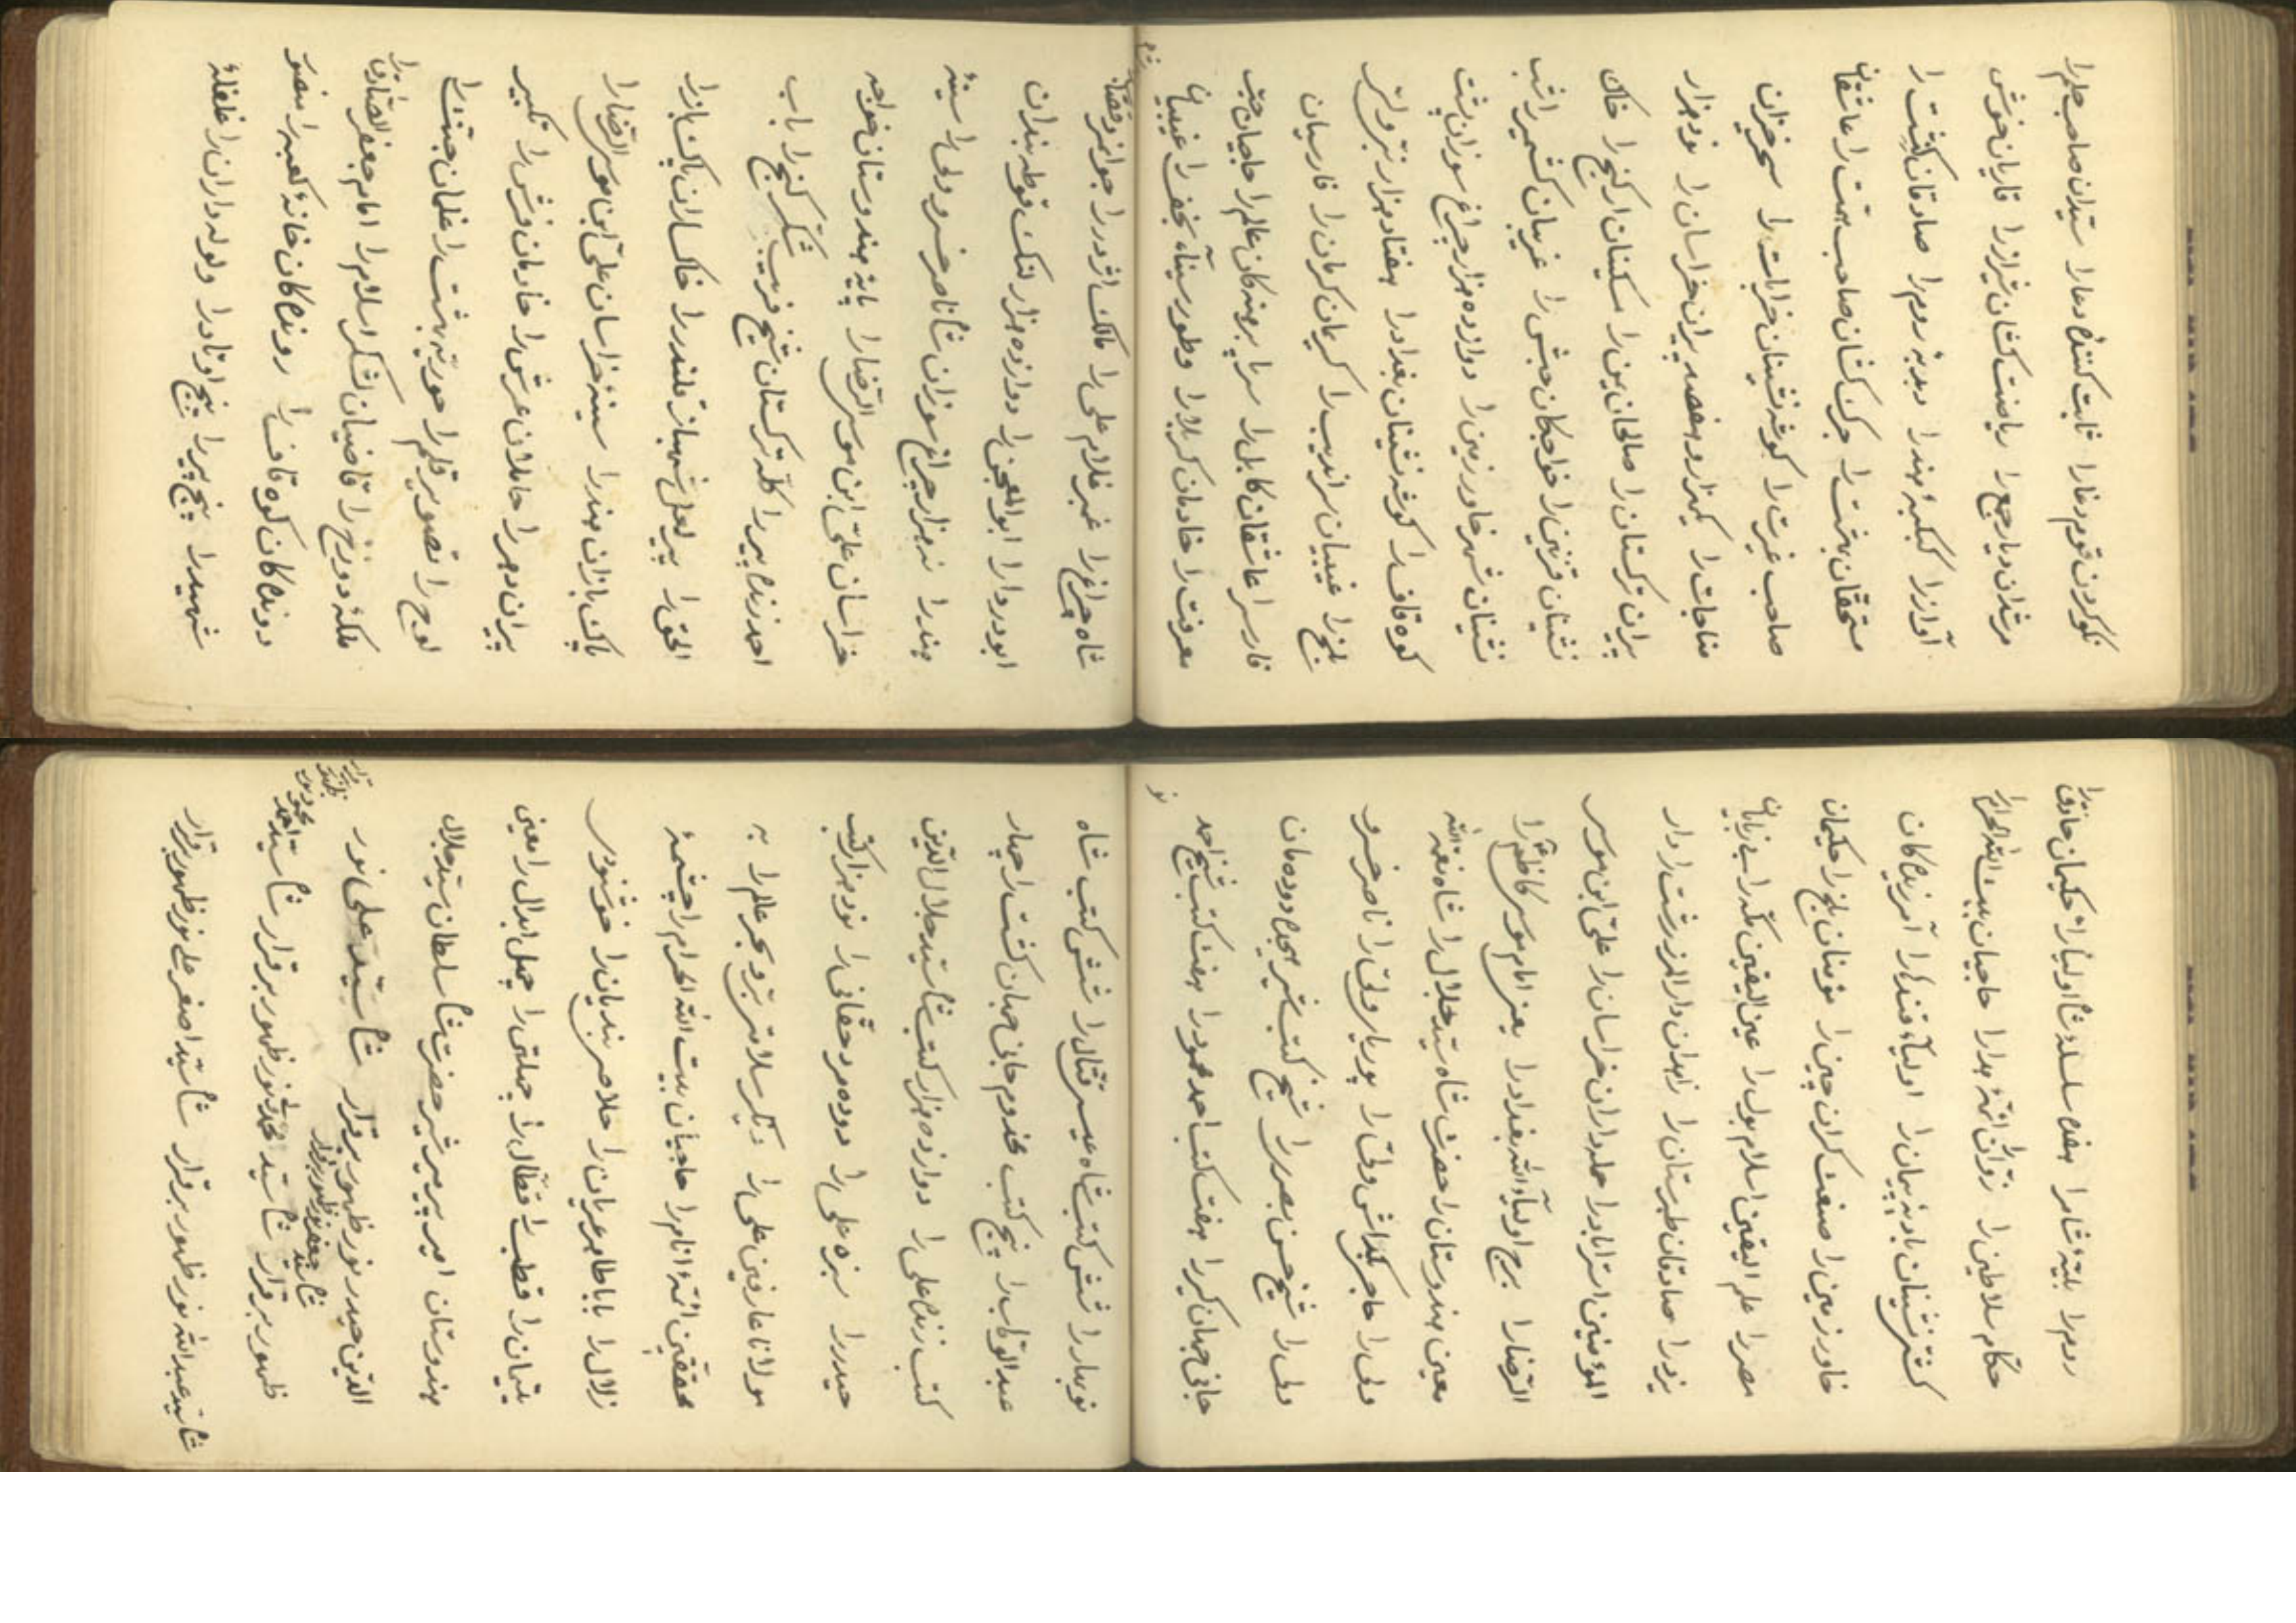 نکوکردن قوم دغا را ثابت کنندۀ دعا را سیدان صاحب حلم را
مرشدان دیار جمع را ریاضت کشان شیراز را قاریان خوش
آواز را کبکبۀ هند را دبدبۀ روم را صادقان کشت را
مستحقان بخت را جرکه کشان صاحب همت را عاشقان
صاحب غیرت را کوشه نشینان خرابات را سحرخیزان
مناجات را یکهزار و هفصد پیران خراسان را نود هزار
پیران ترکستان را صالحان یمن را مسکینان ارکنج را خاک
نشینان قزوین را خواجکان حبش را غریبان کشمیر را شب
نشینان شهر خاور زمین را دوازده هزار چراغ سوزان پشت
کوه قاف را کوشه نشینان بغداد را هفتاد هزار تبر و لتر
بلخ را غیبیان سراندیب را کرمیان کرمان را فارسیان
فارس را عاشقان کابل را سر پا برهنه کان عالم را حاجیان حبّ
معرفت را خادمان کربلا را و طور سیناء نجف را غیبیان
شاه چراغ را غمبر غلام علی را مالک اژدر را جوانمرد قصاب
ابودردا را ابوالمعجن را دوازده هزار لنک فوطه بندان
هند را نه هزار چراغ سوزان شاه ناصر خسرو ولی را سینۀ
خراسان علی ابن موسی الرضا را پایۀ هندوستان خواجه
احمد زنده پیر را کلّه ترکستان شیخ فرید شکر کنج را باب
الحق را پیر لعل شهباز قلندر را خاکساران پاک باز را
پاک بازان هند را سینۀ خراسان علی ابن موسی الرضا را
پیران دهر را حاملان عرش را خادمان فرش را تکبیر
لوح را تصویر قلم را حوریه بهشت را غلمان جنّت را
ملکۀ دوزخ را قاضیان لشکر اسلام را امام جعفر الصادق را
دونده کان کوه قاف را رونده کان خانۀ کعبه را منصور
شهید را پنج پیر را پنج اوتاد را ولوله داران را غلغلۀ
روم را بلیۀ شام را هفده سلسلۀ شاه اولیا را حکیمان حاذق را
حکام سلاطین را زوّاران ائمۀ هدا را حاجیان بیت الله الحرام را
کشتی نشینان بادیه پیمان را اولیاء قندهار را آمرزنده کان
خاور زمین را صنعت کران چین را مؤمنان بلخ را حکیمان
مصر را علم الیقین اسلامبول را عین الیقین مکه را بی زبانان
یزد را صادقان طبرستان را زاهدان دارالمرز رشت را دار
المؤمنین استراباد را حمله داران خراسان را علی ابن موسی
الرضا را برج اولیاء الله بغداد را یعنی امام موسی کاظم را
معین هندوستان را حضرت شاه سید جلال را شاه نعمة الله
ولی را حاجی بکداش ولی را پوریار ولی را ناصر خسرو
ولی را شیخ حسن بصری را شیخ کتب شیر هیجده دودمان
جانی جهان کیر را هفت کتب احمد محمود را هفت کتب شیخ احمد
نوبهار را شش کتب شاه عیسی قتال را شش کتب شاه
عبدالوهاب را پنج کتب مخدوم جانی جهان کشت را چهار
کتب زنده علی را دوازده هزار کتب شاه سید جلال الدین
حیدر را سبزه علی را دوده مرد حقانی را نود هزار کتب
مولانا عارفین علی را دیکر سلامتی بر و بحر عالم را به
محققین ائمۀ انام را حاجیان بیت الله الحرام را چشمۀ
زلال را بابا طاهر عریان را حلاصر بندیان را خوشنوس
یتیمان را قطب را قتال را چهلتن را چهل ابدال را معین
هندوستان امیر پیر میر شیر حضرت شاه سلطان سید جلال
الدین حیدر نور ظهور برقرار شاه سید علی نور
ظهور برقرار شاه سید محمد نور ظهور برقرار شاه سید احمد
شاه سید جعفر نور ظهور برقرار
شاه سید عبدالله نور ظهور برقرار شاه سید اصغر علی نور ظهور برقرار